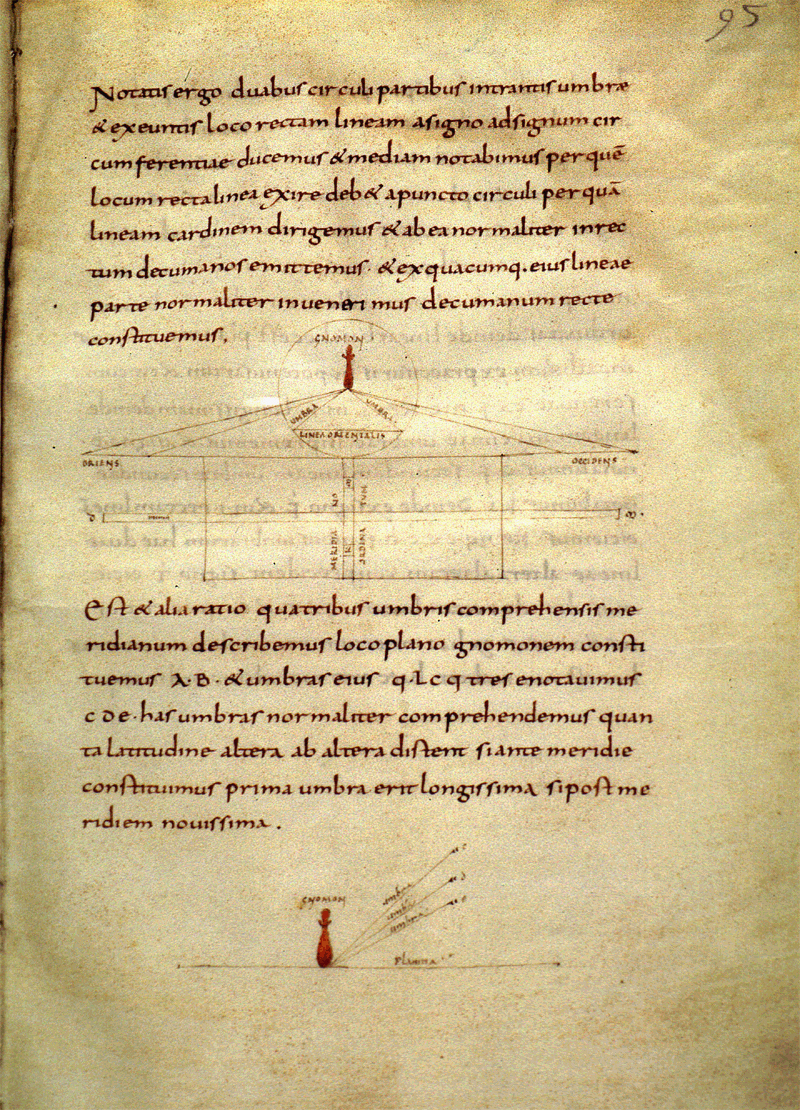 95
Notatis ergo duabus circuli partibus intrantis umbrae
& exeuntis loco rectam lineam asigno adsignum cir
cumferentiae ducemus & mediam notabimus per quē
locum recta linea exire deb& apuncto circuli per quā
lineam cardinem dirigemus & ab ea normaliter inrec
tum decumanos emittemus · & exquacumq. eius lineae
parte normaliter inueneri mus decumanum recte
constituemus,
GNOMON
UMBRA UMBRA
LINEA ORIENTALIS
ORIENS OCCIDENS
MERIDIA
Est & alia ratio qua tribus umbris comprehensis me
ridianum describemus loco plano gnomonem consti
tuemus A·B· & umbras eius q·Lc q tres enotauimus
c d e · has umbras normaliter comprehendemus quan
ta latitudine altera ab altera distent si ante meridie
constituimus prima umbra erit longissima si post me
ridiem nouissima .
GNOMON
umbra c
umbra d
umbra e